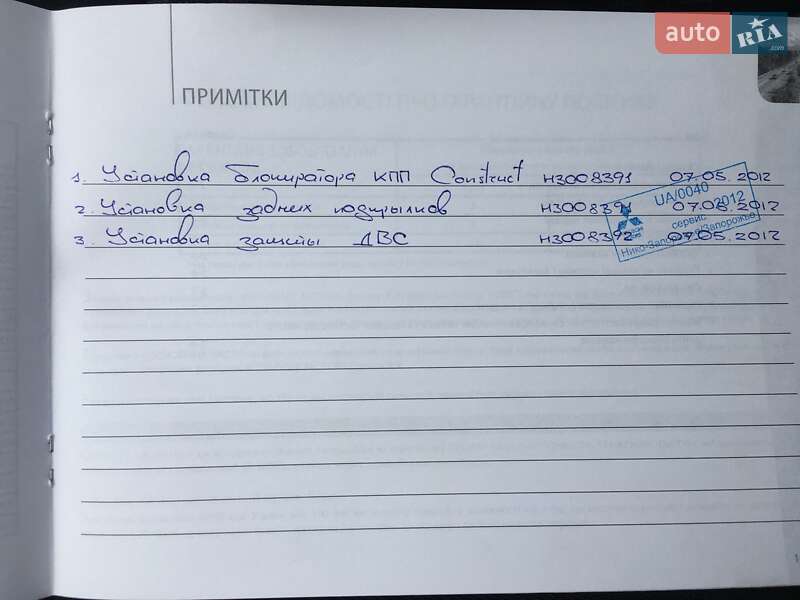 auto RIA .com
ПРИМІТКИ
1. Установка блокиратора КПП Construct НЗ008391 07.05.2012
2. Установка задних подкрылков НЗ008391 07.05.2012
3. Установка защиты ДВС НЗ008392 07.05.2012
UA/0040
2012
сервис
Нико-Запорожье/Запорожье
1